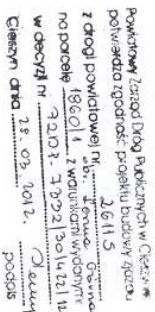 Powiatowy Zarząd Dróg Publicznych w Cieszynie
potwierdza zgodność projektu budowy zjazdu
z drogi powiatowej nr 2611S
na parcelę 1860/1 ob. Górna z warunkami wydanymi
w decyzji nr
Cieszyn dnia 28.03.2012.
podpis